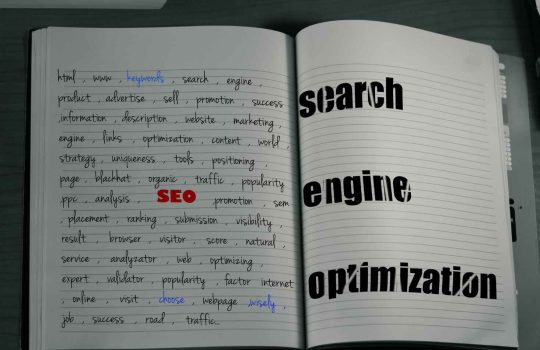 html , www , keywords , search , engine ,
product , advertise , sell , promotion , success
,information , description , website , marketing ,
engine , links , optimization , content , world ,
strategy , uniqueness , tools , positioning ,
page , blackhat , organic , traffic , popularity
,ppc , analysis , SEO ,promotion , sem
, placement , ranking , submission , visibility ,
result , browser , visitor , score , natural ,
service , analyzator , web , optimizing ,
expert , validator , popularity factor internet
, online , visit , choose , webpage ,wisely ,
job , success , road , traffic..
search
engine
optimization